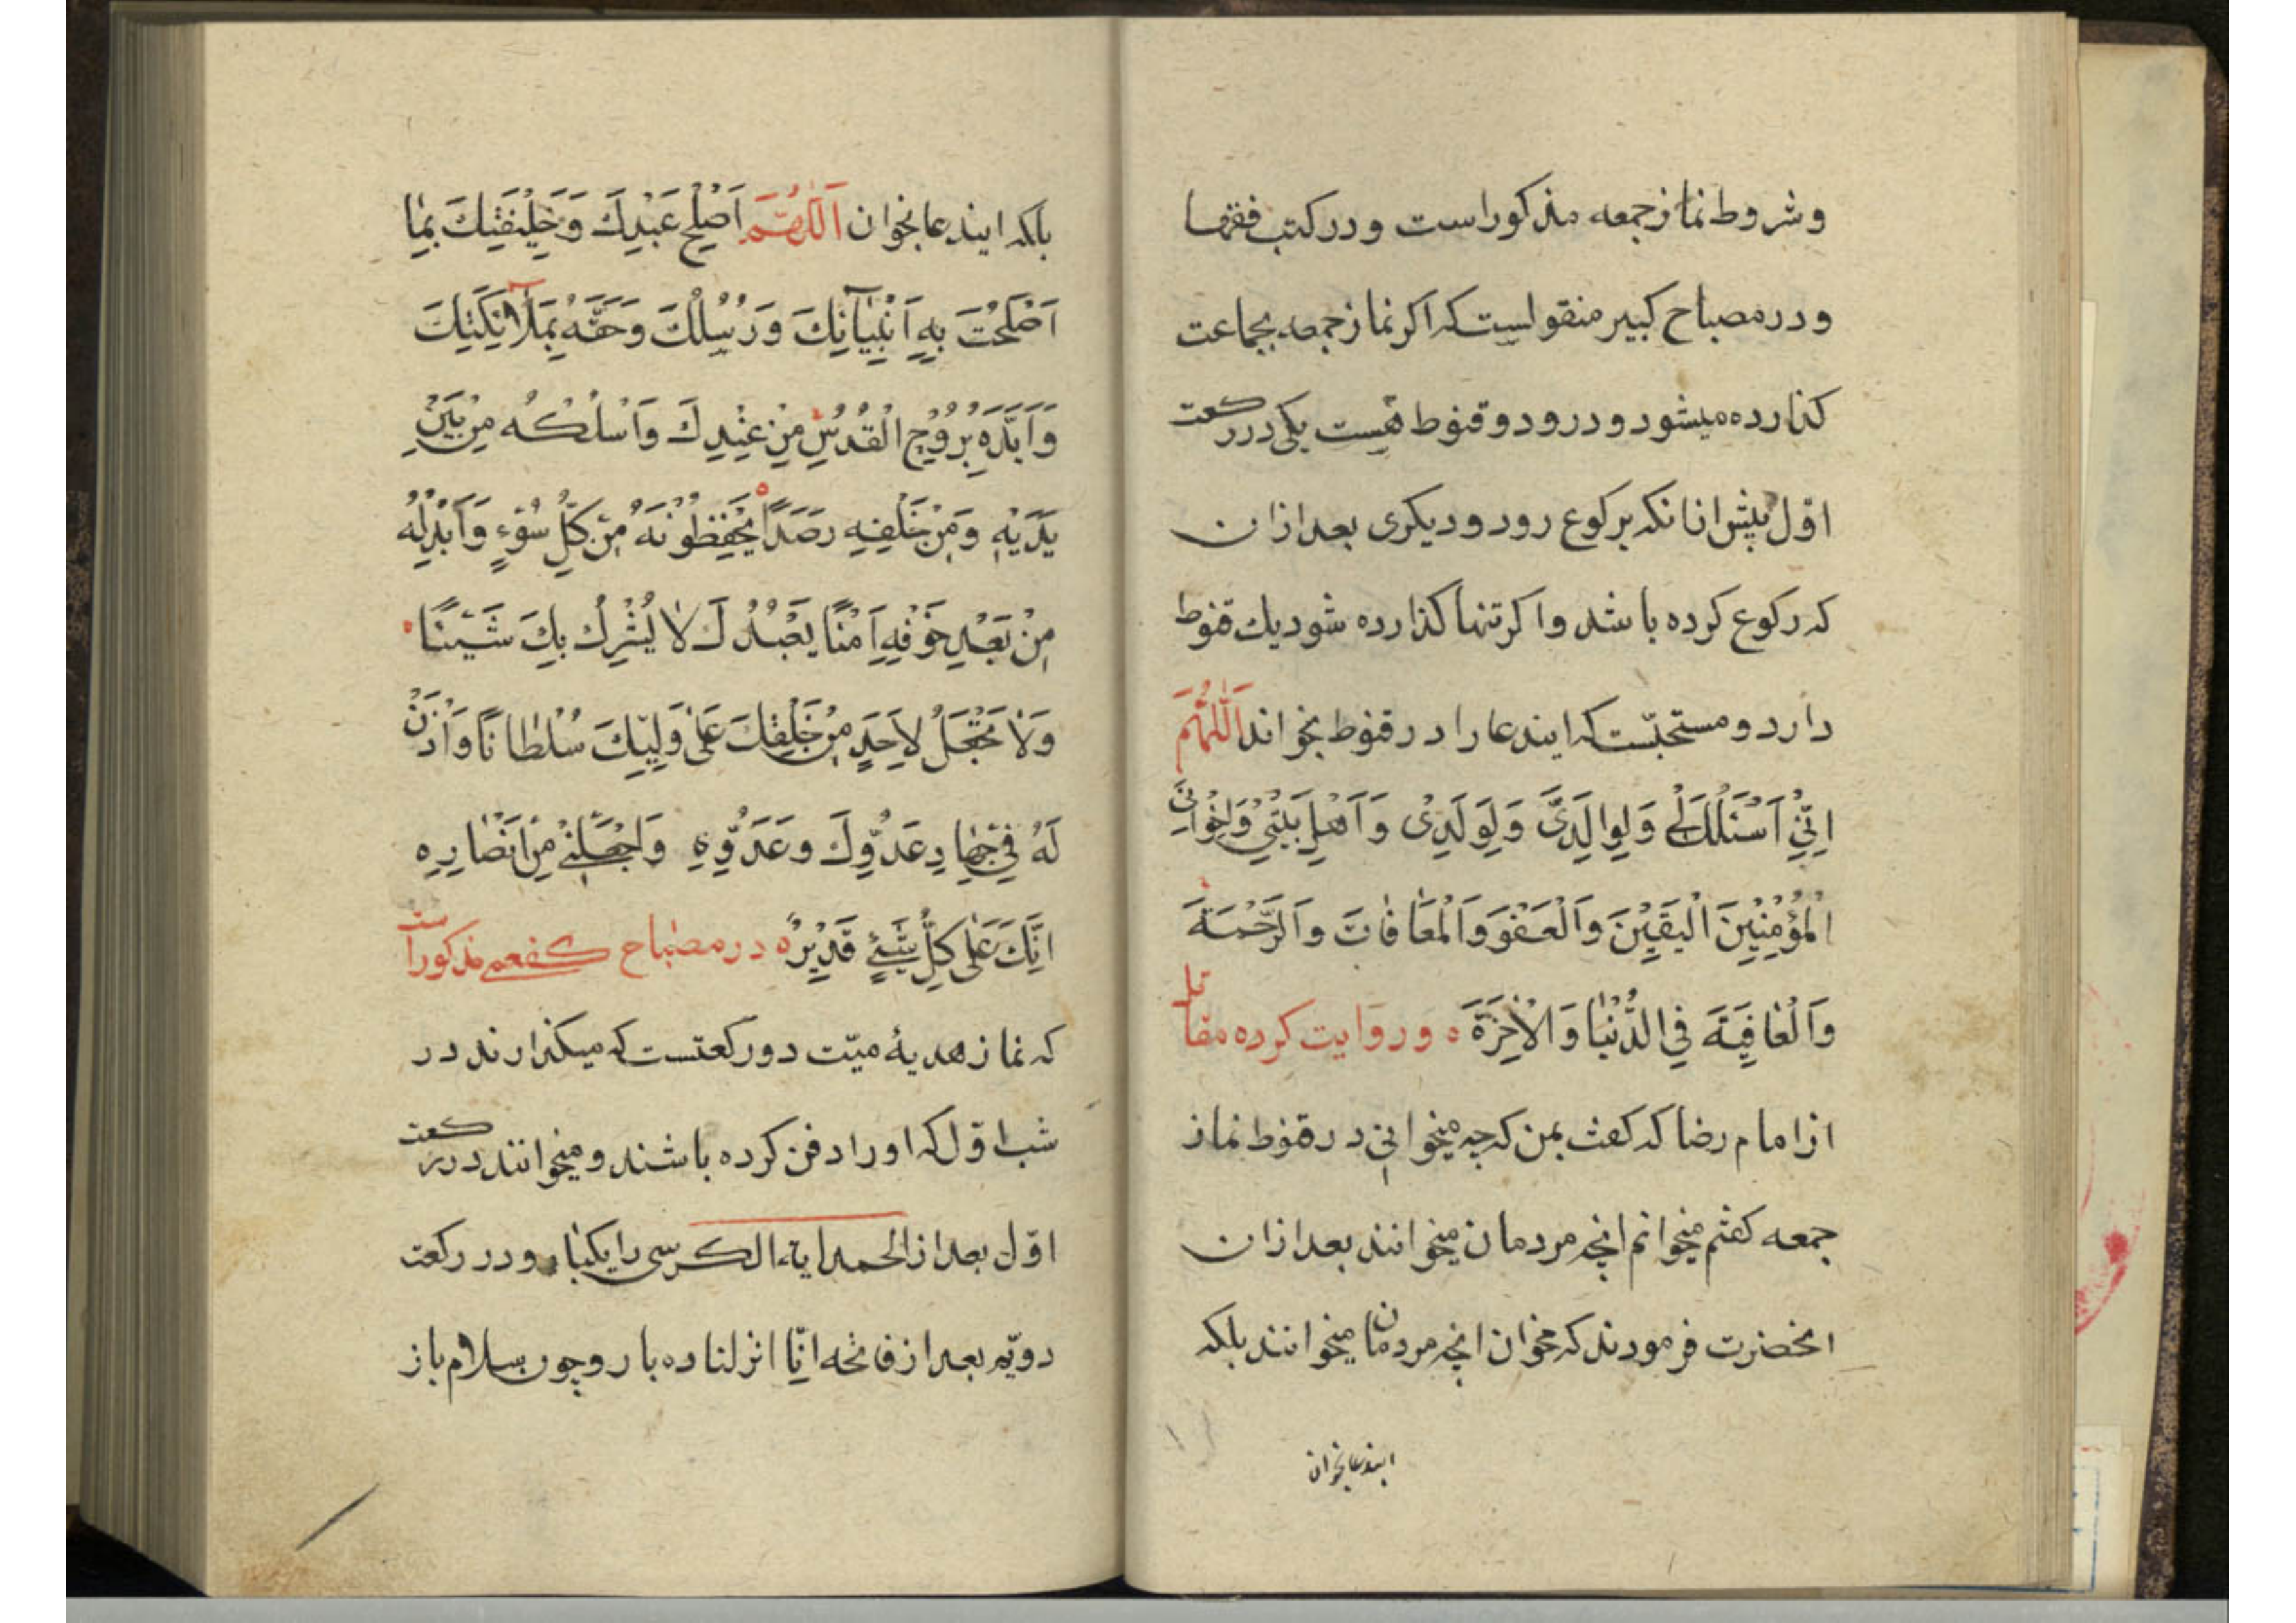 وشروط نماز جمعه مذکور است و در کتب فقها
و در مصباح کبیر منقولست که اکر نماز جمعه بجماعت
کذارده میشود و درو دو قنوط هست یکی در رکعت
اوّل پیش از انکه برکوع رود و دیکری بعد از ان
که رکوع کرده باشد و اکر تنها کذارده شود یك قنوط
دارد و مستحبّست که ایندعا را در قنوط بخواند اَللّٰهُمَّ
اِنّیْ اَسْئَلُكَ لِیْ وَلِوالِدَیَّ وَلِوَلَدِیْ وَاَهْلِ بَیْتیْ وَاِخْوانِیَ
الْمُؤْمِنِیْنَ الْیَقیْنَ وَالْعَفْوَ وَالْمُعَافٰاتَ وَالرَّحْمَةَ
وَالْعٰافِیَةَ فِی الدُّنْیٰا وَالْاٰخِرَةَ ه و روایت کرده مقاتل
از امام رضا که کفت بمن که چه میخوانی در قنوط نماز
جمعه کفتم میخوانم انچه مردمان میخوانند بعد از ان
انحضرت فرمودند که مخوان انچه مردمان میخوانند بلکه
ایندعا بخوان
بلکه ایندعا بخوان اَللّٰهُمَّ اَصْلِحْ عَبْدِكَ وَخَلِیْفَتِكَ بِمٰا
اَصْلَحْتَ بِهِ اَنْبِیٰآئِكَ وَرُسُلِكَ وَحَفَّهُ بِمَلٰآئِكَتِكَ
وَاَیَّدَهِ بِرُوْحِ الْقُدُسِ مِنْ عِنْدِكَ وَاسْلُكْهُ مِنْ بَیْنِ
یَدَیْهِ وَمِنْ خَلْفِهِ رَصَدًا یَحْفِظُوْنَهُ مِنْ كُلِّ سُوْءٍ وَاَبْدِلْهُ
مِنْ بَعْدِ خَوْفِهِ اَمْنًا یَعْبُدُكَ لٰا یُشْرِكُ بِكَ شَیْئًا
وَلٰا تَجْعَلْ لِاَحَدٍ مِنْ خَلْقِكَ عَلٰی وَلِیِّكَ سُلْطٰانًا وَاْذَنْ
لَهُ فیْ جِهٰادِ عَدُوِّكَ وعَدُوِّهِ وَاجْعَلْنیْ مِنْ اَنْصٰارِهِ
اِنَّكَ عَلٰی كُلِّ شَیْئٍ قَدِیْرٌ ه در مصباح کفعمی مذکور است
که نماز هدیهٔ میّت دو رکعتست که میکذارند در
شب اوّل که او را دفن کرده باشند و میخوانند در رکعت
اوّل بعد از الحمد ایة الکرسی را یکبار و در رکعت
دویّم بعد از فاتحه انّا انزلنا ده بار و چون سلام باز